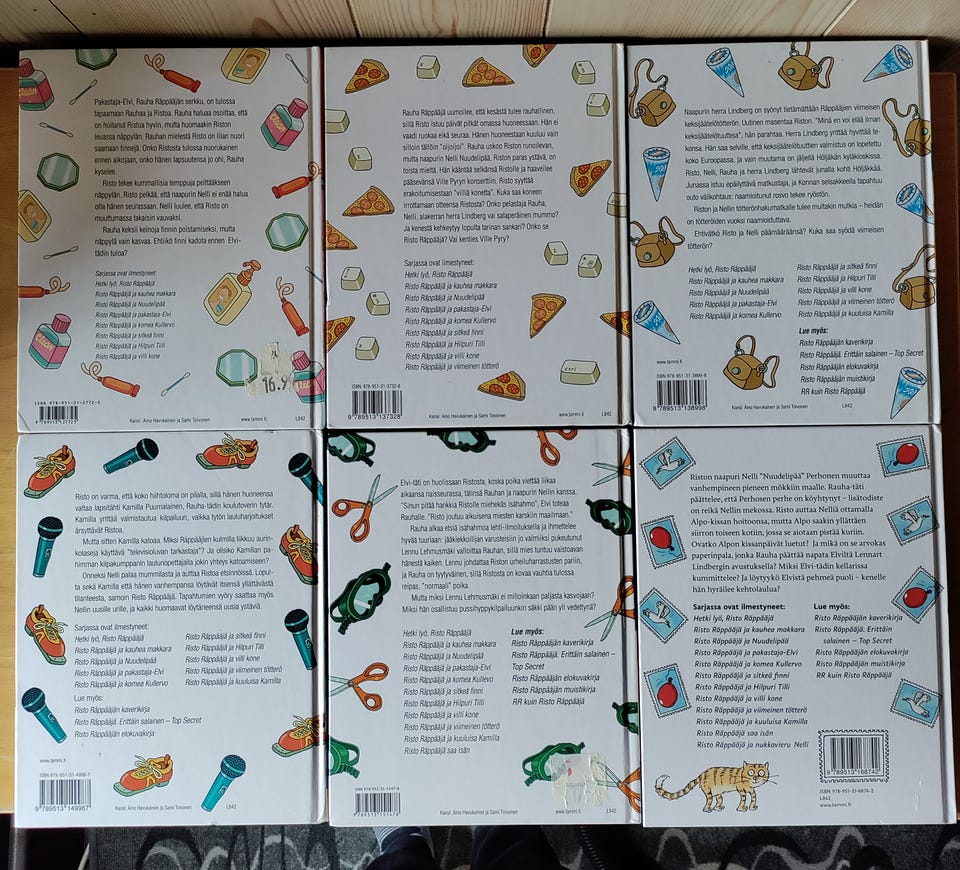 Pakastaja-Elvi, Rauha Räppääjän serkku, on tulossa
tapaamaan Rauhaa ja Ristoa. Rauha haluaa osoittaa, että
on hoitanut Ristoa hyvin, mutta huomaakin Riston
leuassa näppylän. Rauhan mielestä Risto on liian nuori
saamaan finnejä. Onko Ristosta tulossa nuorukainen
ennen aikojaan, onko hänen lapsuutensa jo ohi, Rauha
kyselee.
Risto tekee kummallisia temppuja peittääkseen
näppylän. Risto pelkää, että naapurin Nelli ei enää halua
olla hänen seurassaan. Nelli luulee, että Risto on
muuttumassa takaisin vauvaksi.
Rauha keksii keinoja finnin poistamiseksi, mutta
näppylä vain kasvaa. Ehtiikö finni kadota ennen Elvi-
tädin tuloa?
Sarjassa ovat ilmestyneet:
Hetki lyö, Risto Räppääjä
Risto Räppääjä ja kauhea makkara
Risto Räppääjä ja Nuudelipää
Risto Räppääjä ja pakastaja-Elvi
Risto Räppääjä ja komea Kullervo
Risto Räppääjä ja sitkeä finni
Risto Räppääjä ja Hilpuri Tilli
Risto Räppääjä ja villi kone
16.9
ISBN 978-951-31-2772-5
9 789513 127725
Kansi: Aino Havukainen ja Sami Toivonen
www.tammi.fi
L842
Rauha Räppääjä uumoilee, että kesästä tulee rauhallinen,
sillä Risto istuu päivät pitkät omassa huoneessaan. Hän ei
vaadi ruokaa eikä seuraa. Hänen huoneestaan kuuluu vain
silloin tällöin "oijoijoi". Rauha uskoo Riston runoilevan,
mutta naapurin Nelli Nuudelipää, Riston paras ystävä, on
toista mieltä. Hän kääntää selkänsä Ristolle ja haaveilee
pääsevänsä Ville Pyryn konserttiin. Risto syyttää
erakoitumisestaan "villiä konetta". Kuka saa koneen
irrottamaan otteensa Ristosta? Onko pelastaja Rauha,
Nelli, alakerran herra Lindberg vai salaperäinen mummo?
Ja kenestä kehkeytyy lopulta tarinan sankari? Onko se
Risto Räppääjä? Vai kenties Ville Pyry?
Sarjassa ovat ilmestyneet:
Hetki lyö, Risto Räppääjä
Risto Räppääjä ja kauhea makkara
Risto Räppääjä ja Nuudelipää
Risto Räppääjä ja pakastaja-Elvi
Risto Räppääjä ja komea Kullervo
Risto Räppääjä ja sitkeä finni
Risto Räppääjä ja Hilpuri Tilli
Risto Räppääjä ja villi kone
Risto Räppääjä ja viimeinen tötterö
ISBN 978-951-31-3732-8
9 789513 137328
Kansi: Aino Havukainen ja Sami Toivonen
www.tammi.fi
L842
Naapurin herra Lindberg on syönyt tietämättään Räppääjien viimeisen
keksijäätelötötterön. Uutinen masentaa Riston. "Minä en voi elää ilman
keksijäätelötuutteja", hän parahtaa. Herra Lindberg yrittää hyvittää te-
konsa. Hän saa selville, että keksijäätelötuuttien valmistus on lopetettu
koko Euroopassa, ja vain muutama on jäljellä Höljäkän kyläkioskissa.
Risto, Nelli, Rauha ja herra Lindberg lähtevät junalla kohti Höljäkkää.
Junassa istuu epäilyttävä matkustaja, ja Konnan seisakkeella tapahtuu
outo välikohtaus: naamioitunut rosvo tekee ryöstön.
Riston ja Nellin tötterönhakumatkalle tulee muitakin mutkia – heidän
on tötteröiden vuoksi naamioiduttava.
Ehtivätkö Risto ja Nelli päämääräänsä? Kuka saa syödä viimeisen
tötterön?
Hetki lyö, Risto Räppääjä
Risto Räppääjä ja kauhea makkara
Risto Räppääjä ja Nuudelipää
Risto Räppääjä ja pakastaja-Elvi
Risto Räppääjä ja komea Kullervo
Risto Räppääjä ja sitkeä finni
Risto Räppääjä ja Hilpuri Tilli
Risto Räppääjä ja villi kone
Risto Räppääjä ja viimeinen tötterö
Risto Räppääjä ja kuuluisa Kamilla
Lue myös:
Risto Räppääjän kaverikirja
Risto Räppääjä. Erittäin salainen – Top Secret
Risto Räppääjän elokuvakirja
Risto Räppääjän muistikirja
RR kuin Risto Räppääjä
www.tammi.fi
ISBN 978-951-31-3899-8
9 789513 138998
Kansi: Aino Havukainen ja Sami Toivonen
L842
Risto on varma, että koko hiihtoloma on pilalla, sillä hänen huoneensa
valtaa lapsitähti Kamilla Puumalainen, Rauha-tädin koulutoverin tytär.
Kamilla yrittää valmistautua kilpailuun, vaikka tytön lauluharjoitukset
ärsyttävät Ristoa.
Mutta sitten Kamilla katoaa. Miksi Räppääjien kulmilla liikkuu aurin-
kolaseja käyttävä "televisioluvan tarkastaja"? Ja olisiko Kamillan pa-
himman kilpakumppanin laulunopettajalla jokin yhteys katoamiseen?
Onneksi Nelli palaa mummilasta ja auttaa Ristoa etsinnöissä. Lopul-
ta sekä Kamilla että hänen vanhempansa löytävät itsensä yllättävästä
tilanteesta, samoin Risto Räppääjä. Tapahtumien vyöry saattaa myös
Nellin uusille urille, ja kaikki huomaavat löytäneensä uusia ystäviä.
Sarjassa ovat ilmestyneet:
Hetki lyö, Risto Räppääjä
Risto Räppääjä ja kauhea makkara
Risto Räppääjä ja Nuudelipää
Risto Räppääjä ja pakastaja-Elvi
Risto Räppääjä ja komea Kullervo
Risto Räppääjä ja sitkeä finni
Risto Räppääjä ja Hilpuri Tilli
Risto Räppääjä ja villi kone
Risto Räppääjä ja viimeinen tötterö
Risto Räppääjä ja kuuluisa Kamilla
Lue myös:
Risto Räppääjän kaverikirja
Risto Räppääjä. Erittäin salainen – Top Secret
Risto Räppääjän elokuvakirja
www.tammi.fi
ISBN 978-951-31-4998-7
9 789513 149987
Kansi: Aino Havukainen ja Sami Toivonen
L842
Elvi-täti on huolissaan Ristosta, koska poika viettää liikaa
aikaansa naisseurassa, tätinsä Rauhan ja naapurin Nellin kanssa.
"Sinun pitää hankkia Ristolle miehekäs isähahmo", Elvi toteaa
Rauhalle. "Risto joutuu aikuisena miesten karskiin maailmaan."
Rauha alkaa etsiä isähahmoa lehti-ilmoituksella ja ihmettelee
hyvää tuuriaan: jääkiekkoilijan varusteisiin jo valmiiksi pukeutunut
Lennu Lehmusmäki valloittaa Rauhan, sillä mies tuntuu vaistoavan
hänestä kaiken. Lennu johdattaa Riston urheiluharrastusten pariin,
ja Rauha on tyytyväinen, sillä Ristosta on kovaa vauhtia tulossa
reipas, "normaali" poika.
Mutta miksi Lennu Lehmusmäki ei milloinkaan paljasta kasvojaan?
Miksi hän osallistuu pussihyppykilpailuunkin säkki pään yli vedettynä?
Hetki lyö, Risto Räppääjä
Risto Räppääjä ja kauhea makkara
Risto Räppääjä ja Nuudelipää
Risto Räppääjä ja pakastaja-Elvi
Risto Räppääjä ja komea Kullervo
Risto Räppääjä ja sitkeä finni
Risto Räppääjä ja Hilpuri Tilli
Risto Räppääjä ja villi kone
Risto Räppääjä ja viimeinen tötterö
Risto Räppääjä ja kuuluisa Kamilla
Risto Räppääjä saa isän
Lue myös:
Risto Räppääjän kaverikirja
Risto Räppääjä. Erittäin salainen –
Top Secret
Risto Räppääjän elokuvakirja
Risto Räppääjän muistikirja
RR kuin Risto Räppääjä
Kansi: Aino Havukainen ja Sami Toivonen
www.tammi.fi
L842
Riston naapuri Nelli "Nuudelipää" Perhonen muuttaa
vanhempineen pieneen mökkiin maalle. Rauha-täti
päättelee, että Perhosen perhe on köyhtynyt – lisätodiste
on reikä Nellin mekossa. Risto auttaa Nelliä ottamalla
Alpo-kissan hoitoonsa, mutta Alpo saakin yllättäen
siirron toiseen kotiin, jossa se aiotaan pistää kuriin.
Ovatko Alpon kissanpäivät luetut? Ja mikä on se arvokas
paperinpala, jonka Rauha päättää napata Elviltä Lennart
Lindbergin avustuksella? Miksi Elvi-tädin kellarissa
kummittelee? Ja löytyykö Elvistä pehmeä puoli – kenelle
hän hyräilee kehtolaulua?
Sarjassa ovat ilmestyneet:
Hetki lyö, Risto Räppääjä
Risto Räppääjä ja kauhea makkara
Risto Räppääjä ja Nuudelipää
Risto Räppääjä ja pakastaja-Elvi
Risto Räppääjä ja komea Kullervo
Risto Räppääjä ja sitkeä finni
Risto Räppääjä ja Hilpuri Tilli
Risto Räppääjä ja villi kone
Risto Räppääjä ja viimeinen tötterö
Risto Räppääjä ja kuuluisa Kamilla
Risto Räppääjä saa isän
Risto Räppääjä ja nukkavieru Nelli
Lue myös:
Risto Räppääjän kaverikirja
Risto Räppääjä. Erittäin
salainen – Top Secret
Risto Räppääjän elokuvakirja
Risto Räppääjän muistikirja
RR kuin Risto Räppääjä
9 789513 168742
ISBN 978-951-31-6874-2
L842
www.tammi.fi